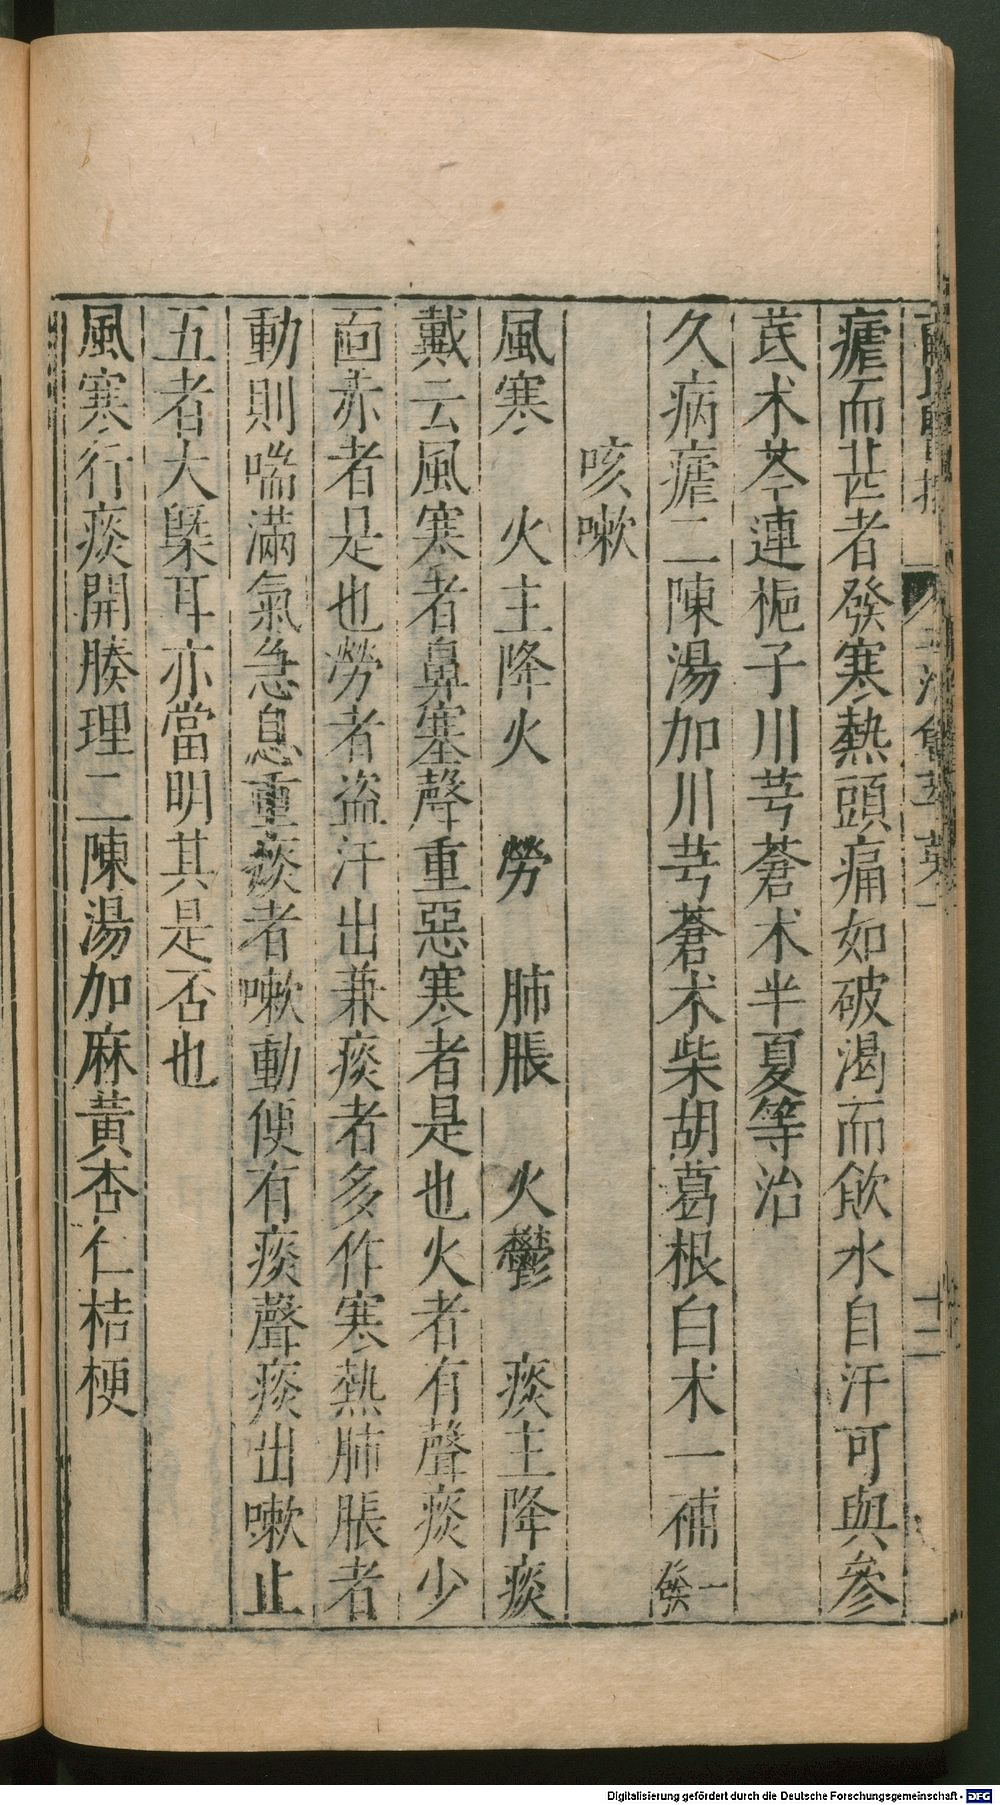 瘧而甚者發寒熱頭痛如破渴而飲水自汗可與參
芪术芩連梔子川芎蒼术半夏等治
久病瘧二陳湯加川芎蒼术柴胡葛根白术一補一發
咳嗽
風寒 火主降火 勞 肺脹 火鬱 痰主降痰
戴云風寒者鼻塞聲重惡寒者是也火者有聲痰少
面赤者是也勞者盜汗出兼痰者多作寒熱肺脹者
動則喘滿氣急息重痰者嗽動便有痰聲痰出嗽止
五者大槩耳亦當明其是否也
風寒行痰開腠理二陳湯加麻黃杏仁桔梗
十二
Digitalisierung gefördert durch die Deutsche Forschungsgemeinschaft - DFG